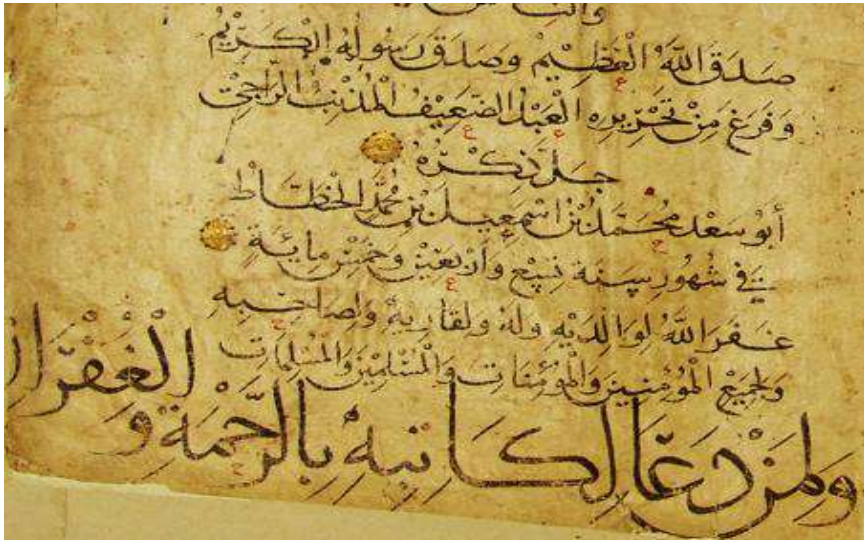 والناس
صَدَقَ اللَّهُ الْعَظِيمُ وَصَدَقَ رَسُولُهُ الْكَرِيمُ
وَفَرَغَ مِنْ تَحْرِيرِهِ الْعَبْدُ الضَّعِيفُ الْمُذْنِبُ الرَّاجِي
جَلَّ ذِكْرُهُ
أَبُو سَعْد مُحَمَّدُ بْنُ اسْمَعِيلَ بْنِ مُحَمَّدِ الْخَطَّاطُ
فِي شُهُورِ سَنَةِ وَأَرْبَعِينَ وَخَمْسِ مِائَةٍ
غَفَرَ اللَّهُ لِوَالِدَيْهِ وَلَهُ وَلِقَارِيهِ وَلِصَاحِبِهِ
وَلِجَمِيعِ الْمُؤْمِنِينَ وَالْمُؤْمِنَاتِ وَالْمُسْلِمِينَ وَالْمُسْلِمَاتِ
وَلِمَنْ دَعَا لِكَاتِبِهِ بِالرَّحْمَةِ وَ الْغُفْرَانِ